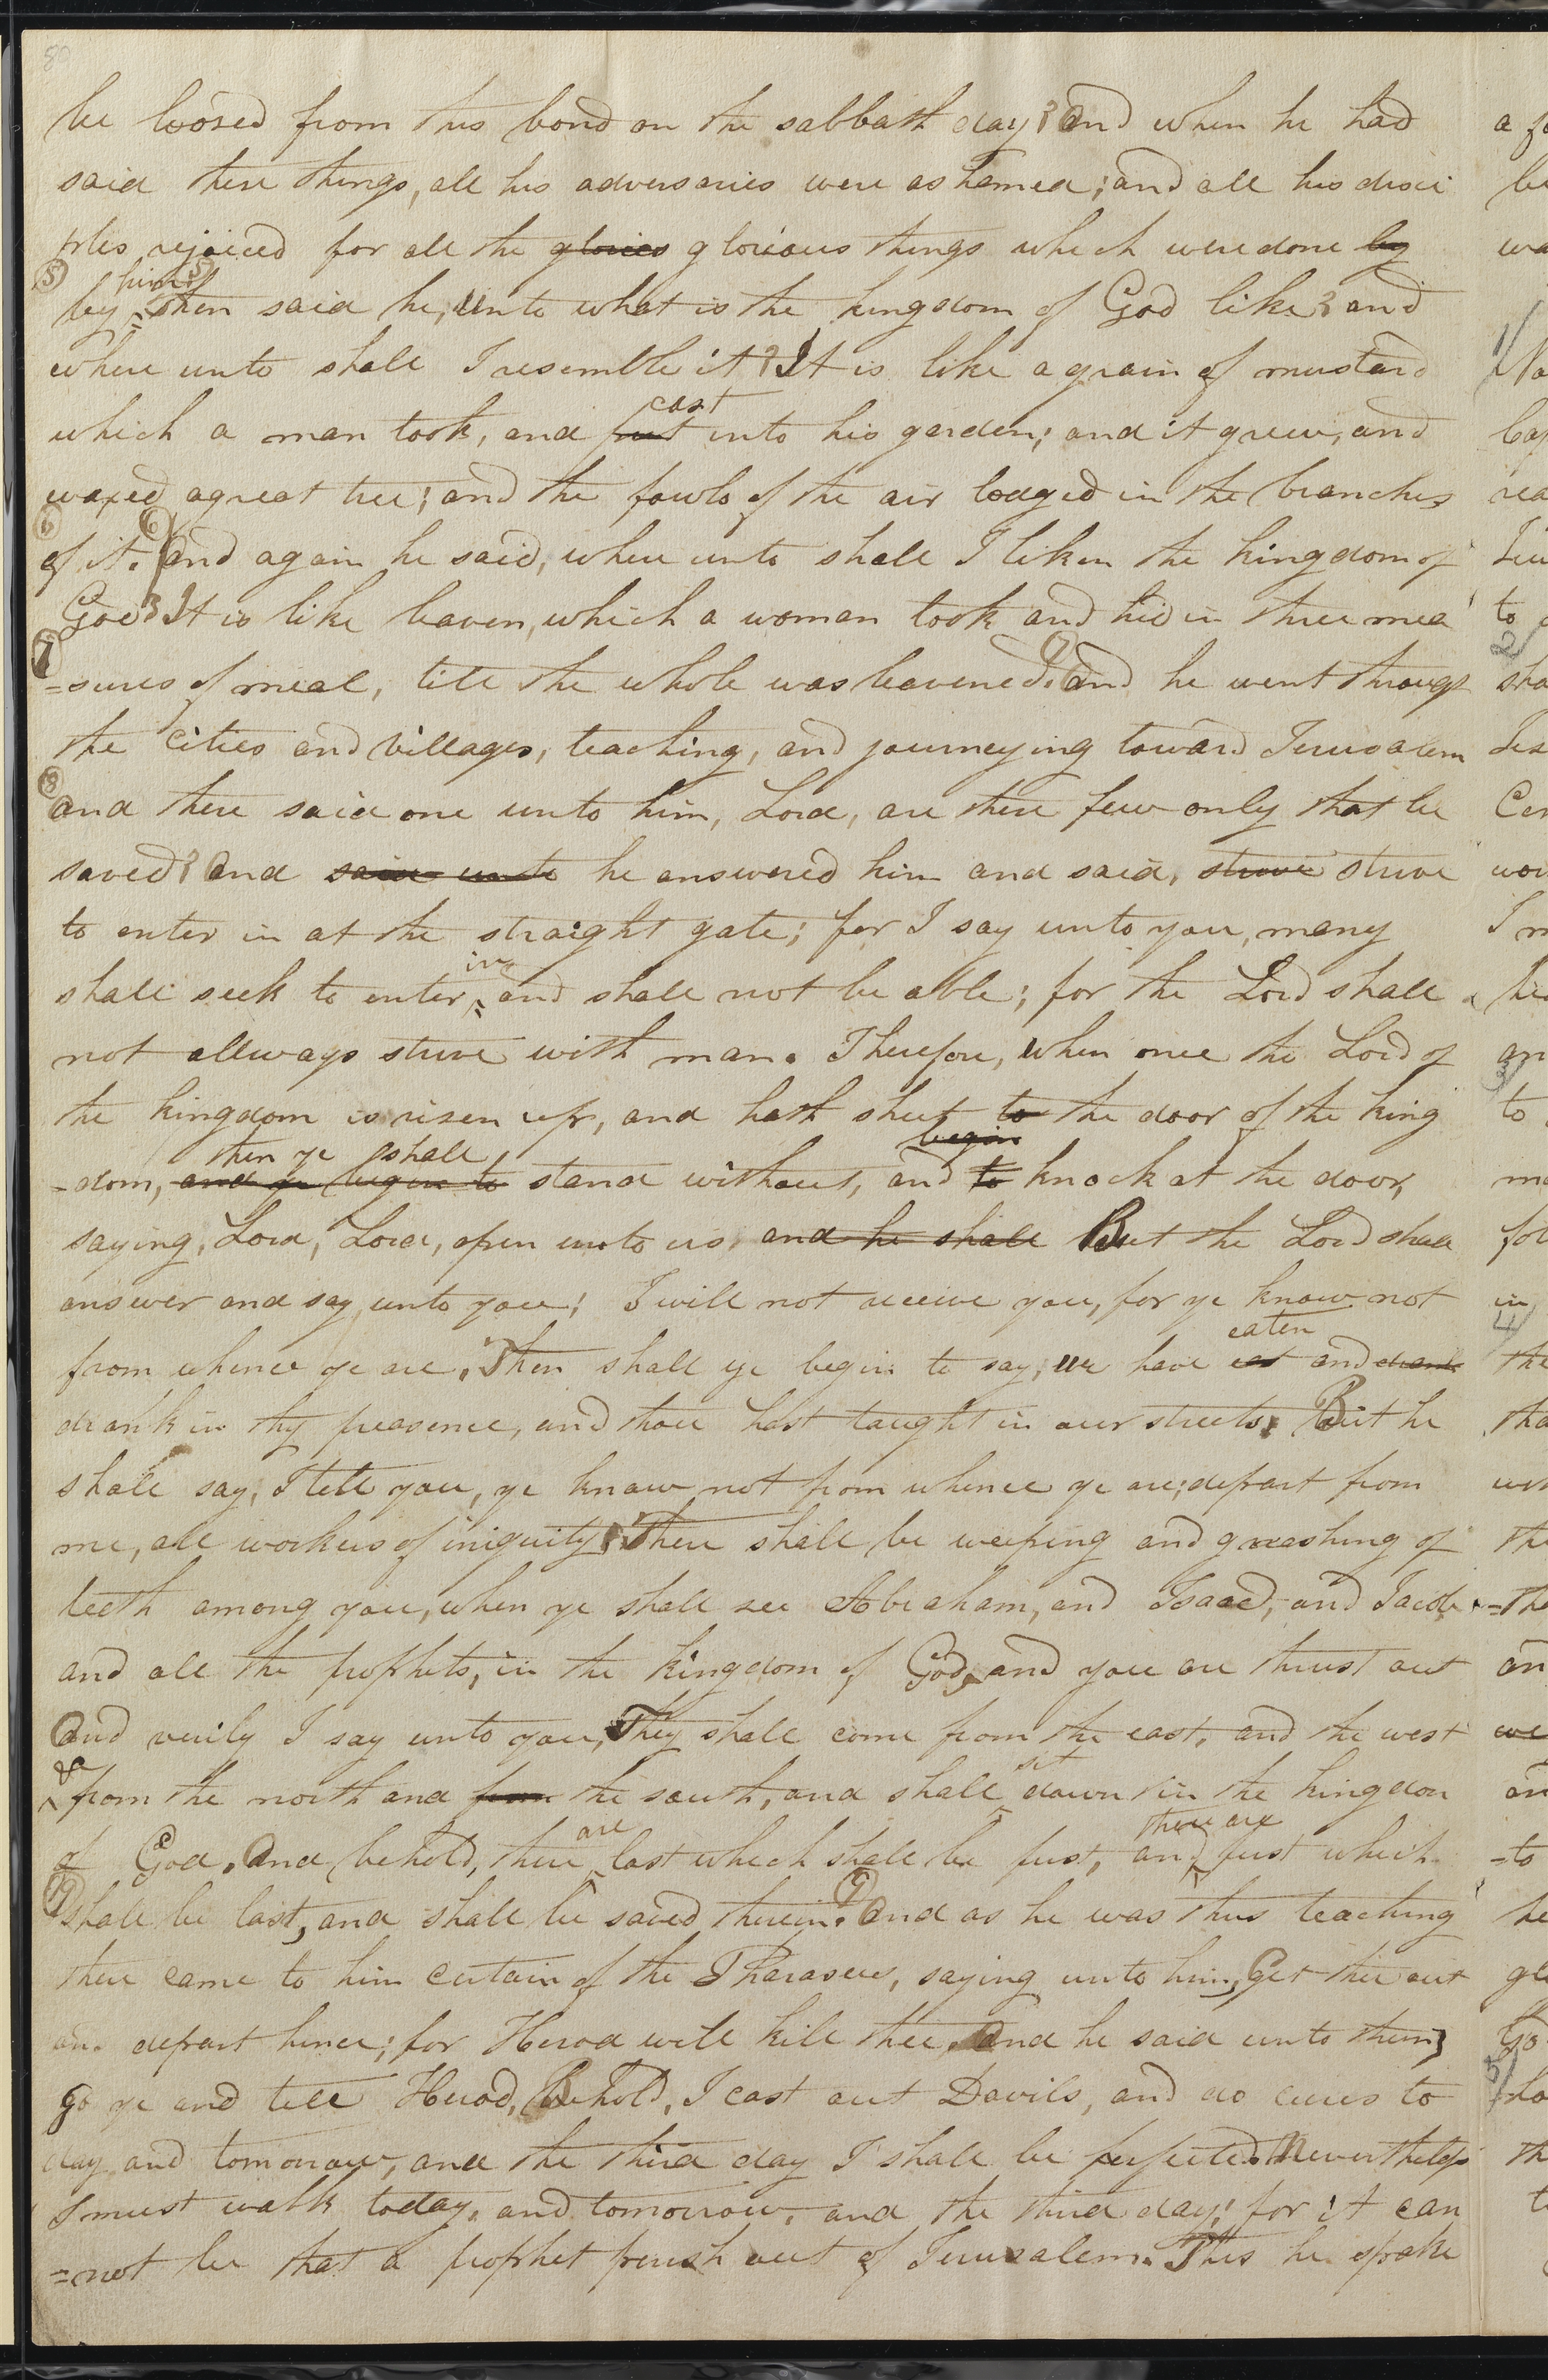 80
be loosed from this bond on the sabbath day? And when he had
said these things, all his adversaries were ashamed; and all his disci
ples rejoiced for all the glories glorious things which were done by
5 him 5
by, Then said he, Unto what is the kingdom of God like? and
where unto shall I resemble it? It is like a grain of mustard
cast
which a man took, and put into his garden; and it grew, and
waxed a great tree; and the fowls of the air lodged in the branches
6 6
of it. And again he said, where unto shall I liken the kingdom of
God? It is like leaven, which a woman took and hid in three mea
7 7
=sures of meal, till the whole was leavened. And he went through
the cities and villages, teaching, and journeying toward Jerusalem
8
and there said one unto him, Lord, are there few only that be
saved? And said unto he answered him and said, strive strive
to enter in at the straight gate; for I say unto you, many
in
shall seek to enter, and shall not be able; for the Lord shall
not allways strive with man. Therefore, when once the Lord of
the kingdom is risen up, and hath shut to the door of the king
then ye shall begin
=dom, and ye begin to stand without, and to knock at the door,
saying, Lord, Lord, open unto us, and he shall But the Lord shall
answer and say unto you; I will not receive you, for ye know not
eaten
from whence ye are. Then shall ye begin to say, we have eat and drank
drank in thy preasence, and thou hast taught in our streets. But he
shall say, I tell you, ye know not from whence ye are; depart from
me, all workers of iniquity. There shall be weeping and gneashing of
teeth among you, when ye shall see Abraham, and Isaac, and Jacob
and all the prophets, in the kingdom of God, and you are thrust out
And verily I say unto you, They shall come from the east, and the west
& sit
from the north and from the south, and shall down in the kingdom
are there are
of God. And behold, there last which shall be first, and first which
9 9
shall be last, and shall be saved therein. And as he was thus teaching
there came to him certain of the Pharasees, saying unto him, Get thee out
an. depart hence; for Herod will kill thee. And he said unto them,
go ye and tell Herod, Behold, I cast out Davils, and do cures to
day and tomorrow, and the third day I shall be perfected. Nevertheless
I must walk today, and tomorrow, and the third day; for it can
=not be that a prophet perish out of Jerusalem. This he spake